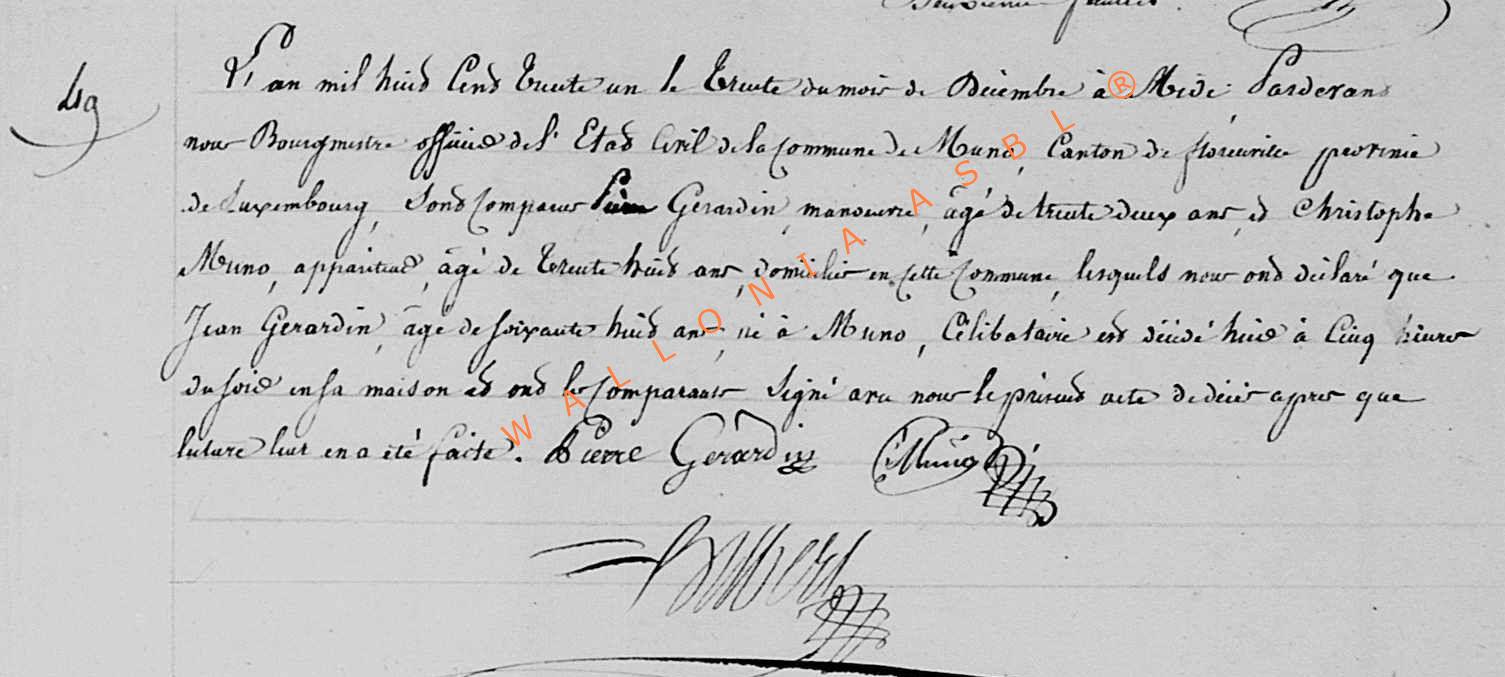 49
L'an mil huit Cent trente un le trente du mois de Décembre à Midi Pardevant
nous Bourgmestre officier de l'Etat Civil de la Commune de Muno, Canton de florenville province
de Luxembourg, sont Comparus Pierre Gerardin, manoeuvre, âgé de trente deux ans, et Christophe
Muno, appariteur, âgé de trente huit ans, domiciliés en cette Commune, lesquels nous ont déclaré que
Jean Gerardin, âgé de soixante huit ans, né à Muno, Célibataire est décédé hier à Cinq heures
du soir en sa maison et ont les Comparants signé avec nous le présent acte de décès après que
lecture leur en a été faite. Pierre Gerardin C Muno
WALLONIA ASBL ®